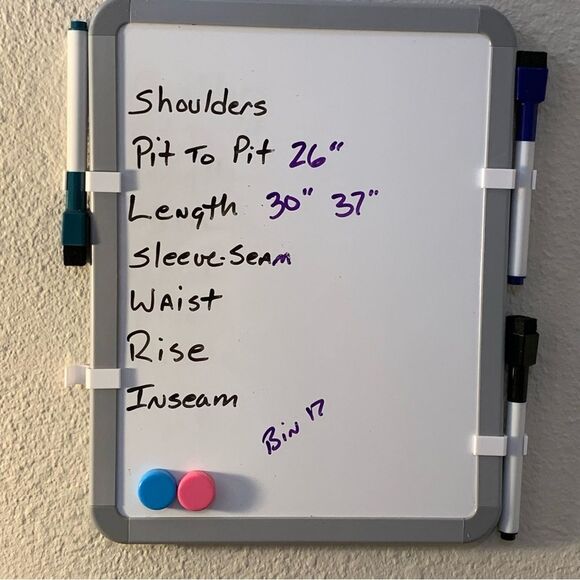 Shoulders
Pit To Pit 26"
Length 30" 37"
Sleeve-Seam
Waist
Rise
Inseam
Bin 17